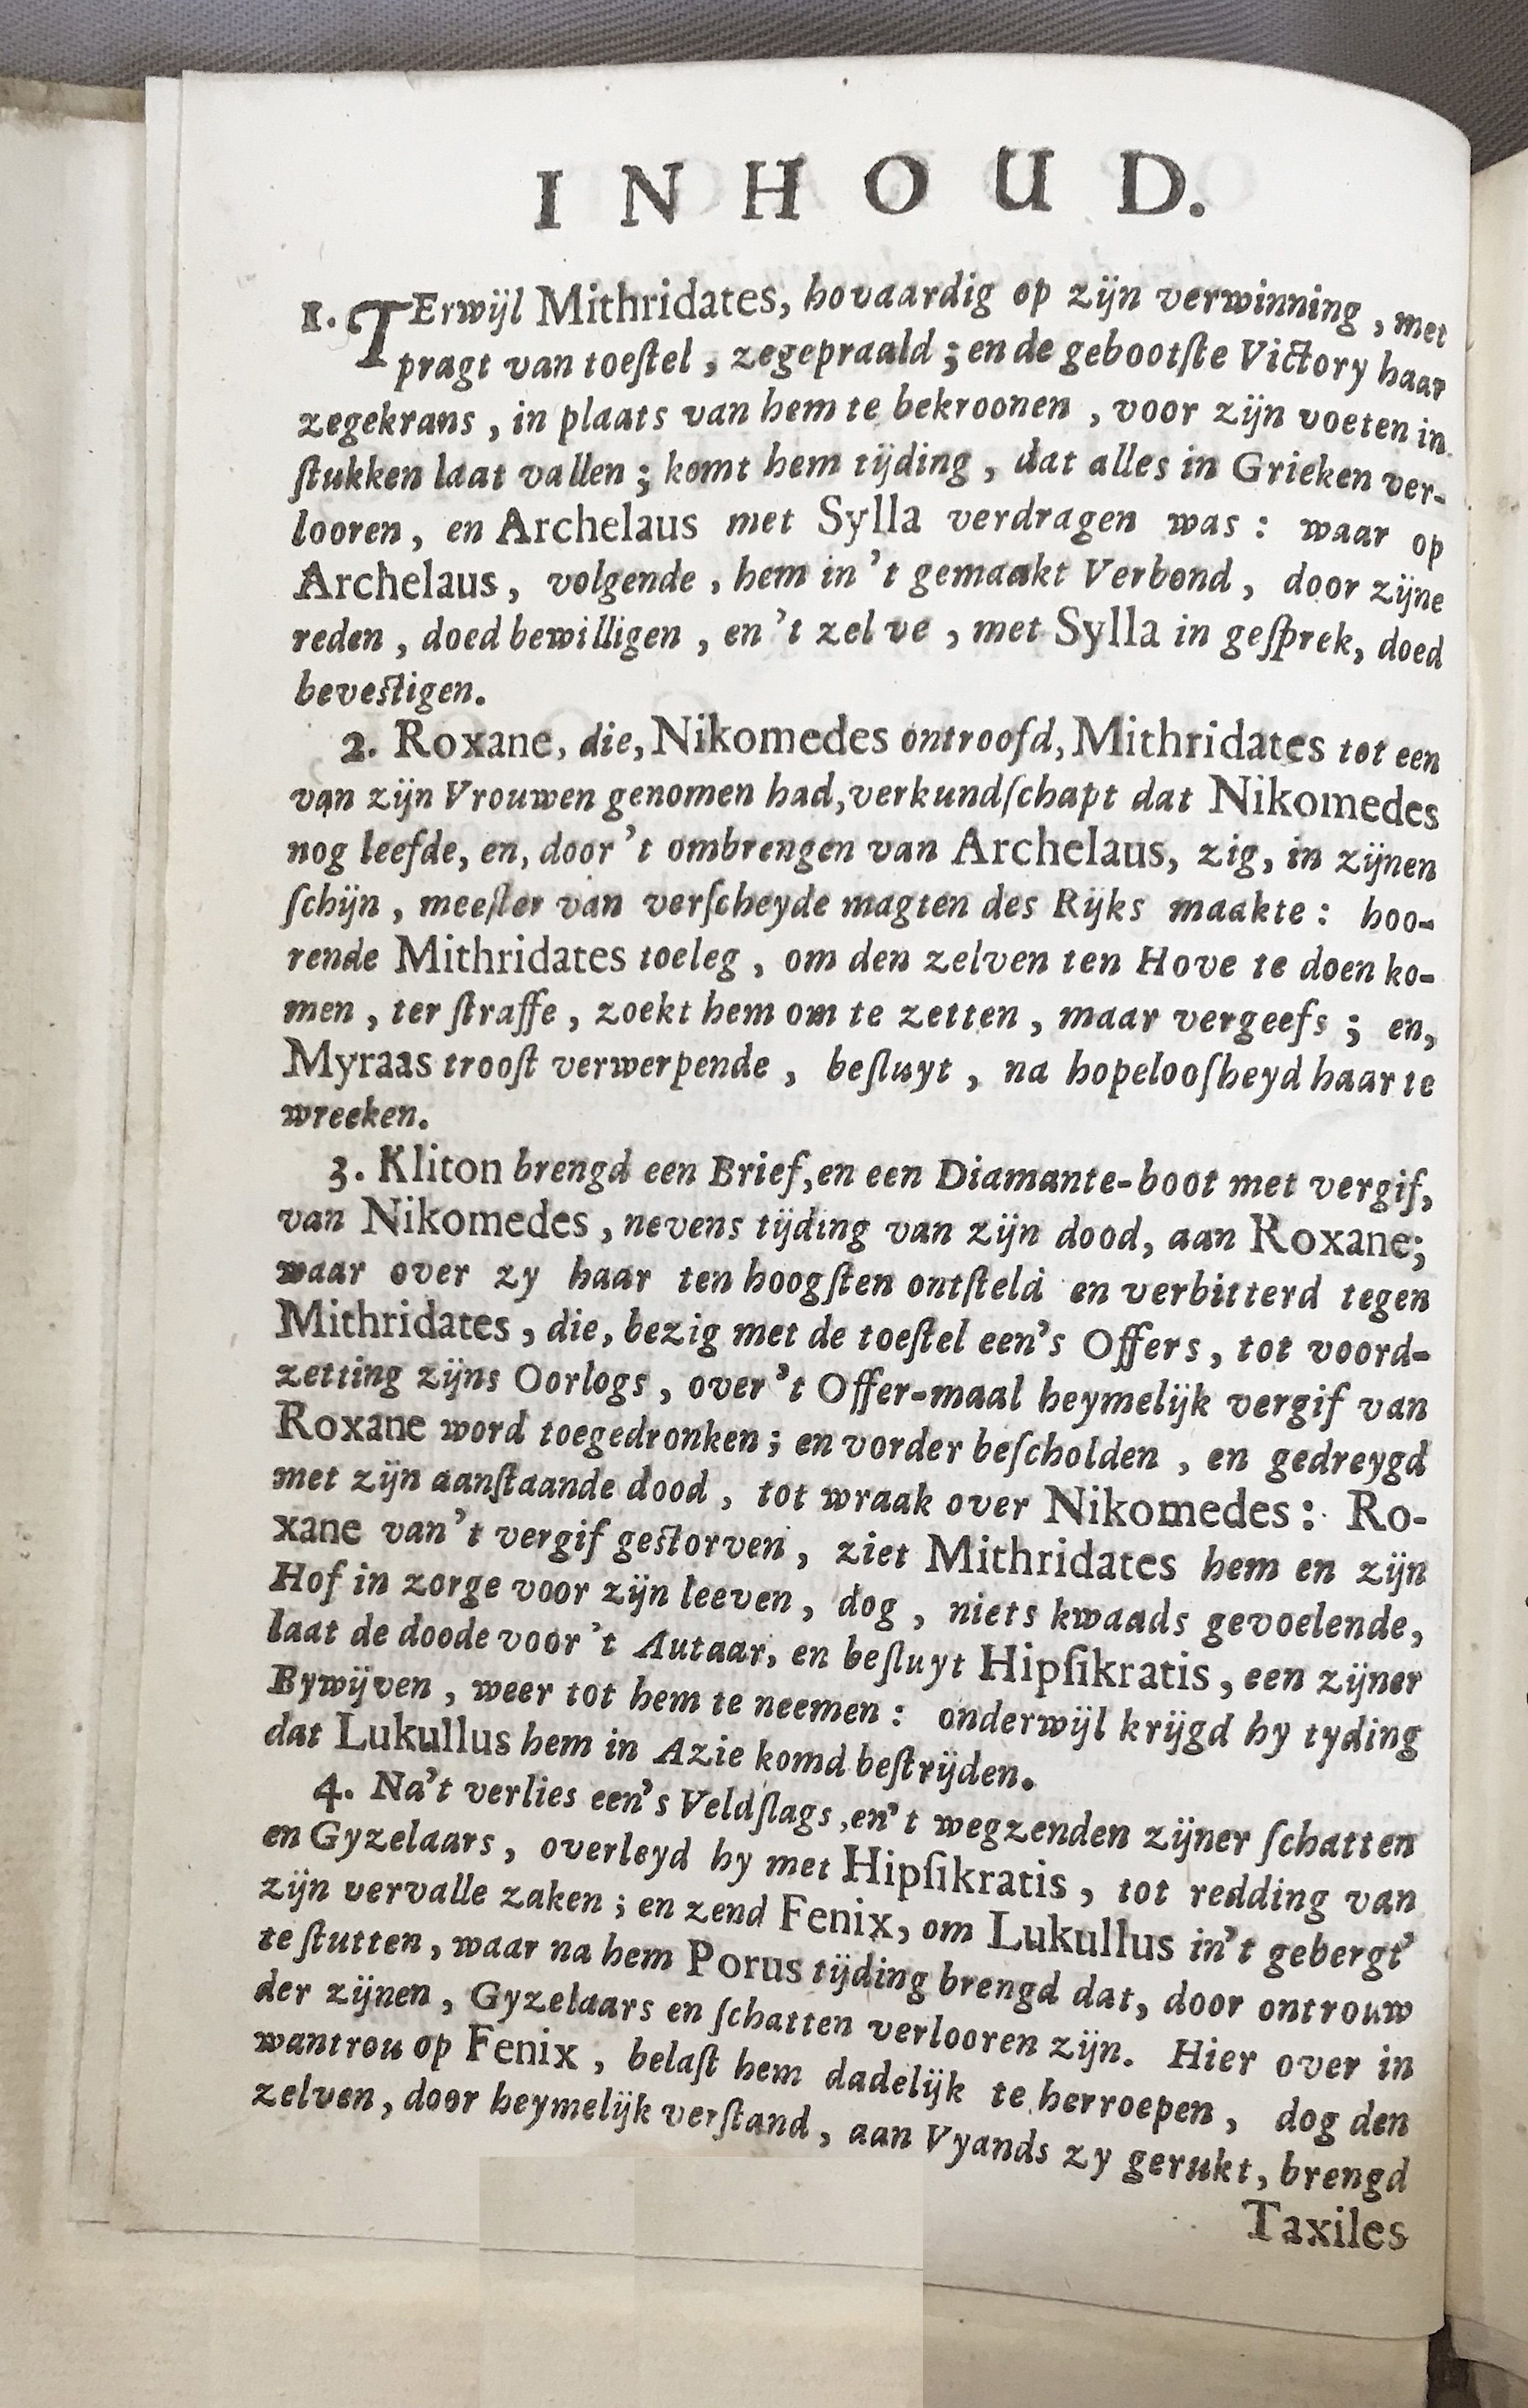 INHOUD.
1. TErwijl Mithridates, hovaardig op zijn verwinning, met
pragt van toeſtel, zegepraald; en de gebootſte Victory haar
zegekrans, in plaats van hem te bekroonen, voor zijn voeten in
ſtukken laat vallen; komt hem tijding, dat alles in Grieken ver-
looren, en Archelaus met Sylla verdragen was: waar op
Archelaus, volgende, hem in 't gemaakt Verbond, door zijne
reden, doed bewilligen, en 't zelve, met Sylla in geſprek, doed
beveſtigen.
2. Roxane, die, Nikomedes ontroofd, Mithridates tot een
van zijn Vrouwen genomen had, verkundſchapt dat Nikomedes
nog leefde, en, door 't ombrengen van Archelaus, zig, in zijnen
ſchijn, meeſter van verſcheyde magten des Rijks maakte: hoo-
rende Mithridates toeleg, om den zelven ten Hove te doen ko-
men, ter ſtraffe, zoekt hem om te zetten, maar vergeefs; en,
Myraas trooſt verwerpende, beſluyt, na hopelooſheyd haar te
wreeken.
3. Kliton brengd een Brief, en een Diamante-boot met vergif,
van Nikomedes, nevens tijding van zijn dood, aan Roxane;
waar over zy haar ten hoogſten ontſteld en verbitterd tegen
Mithridates, die, bezig met de toeſtel een's Offers, tot voord-
zetting zijns Oorlogs, over 't Offer-maal heymelijk vergif van
Roxane word toegedronken; en vorder beſcholden, en gedreygd
met zijn aanſtaande dood, tot wraak over Nikomedes: Ro-
xane van 't vergif geſtorven, ziet Mithridates hem en zijn
Hof in zorge voor zijn leeven, dog, niets kwaads gevoelende,
laat de doode voor 't Autaar, en beſluyt Hipſikratis, een zijner
Bywijven, weer tot hem te neemen: onderwijl krijgd hy tyding
dat Lukullus hem in Azie komd beſtrijden.
4. Na't verlies een's Veldſlags, en't wegzenden zijner ſchatten
en Gyzelaars, overleyd hy met Hipſikratis, tot redding van
zijn vervalle zaken; en zend Fenix, om Lukullus in't gebergt'
te ſtutten, waar na hem Porus tijding brengd dat, door ontrouw
der zijnen, Gyzelaars en ſchatten verlooren zijn. Hier over in
wantrou op Fenix, belaſt hem dadelijk te herroepen, dog den
zelven, door heymelijk verſtand, aan Vyands zy gerukt, brengd
Taxiles